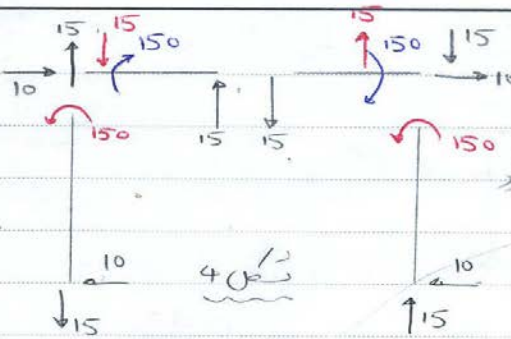 15 15 150 15 150 15
10 10
15 15
150 150
10 شكل 4 10
15 15